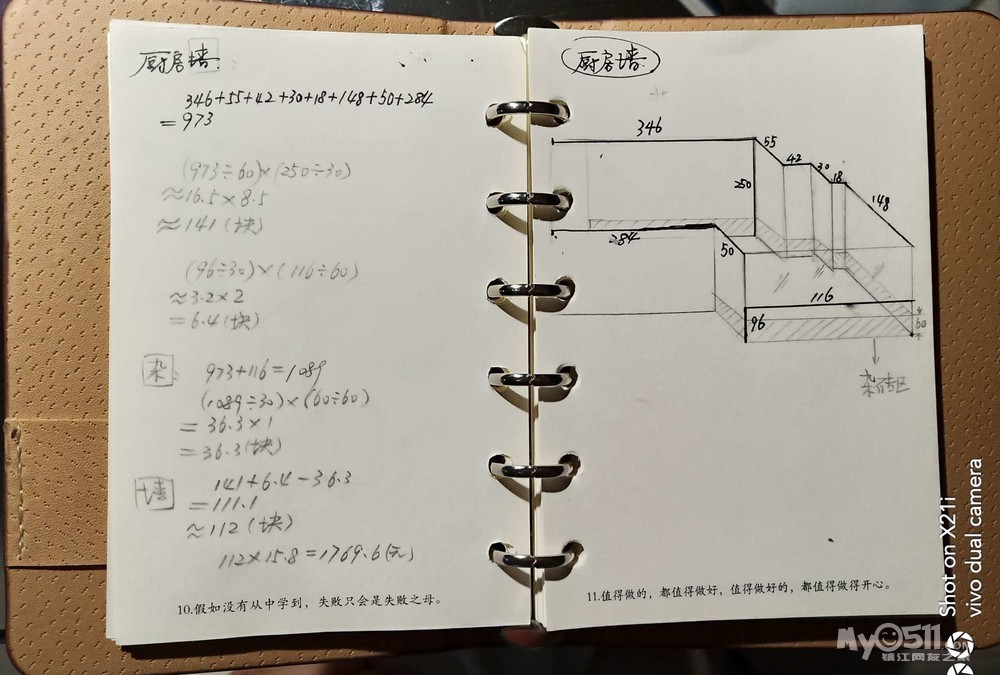 厨房墙
346+55+42+30+18+148+50+284
=973
(973÷60)×(250÷30)
≈16.5×8.5
≈141(块)
(96÷30)×(116÷60)
≈3.2×2
=6.4(块)
杂:
973+116=1089
(1089÷30)×(60÷60)
=36.3×1
=36.3(块)
墙
141+6.4-36.3
=111.1
≈112(块)
112×15.8=1769.6(元)
10.假如没有从中学到，失败只会是失败之母。
厨房墙
346
55
42
30
18
148
250
284
50
116
96
60
杂砖区
11.值得做的，都值得做好，值得做好的，都值得做得开心。
Shot on X21i
vivo dual camera
My0511.COM
镇江网友之家